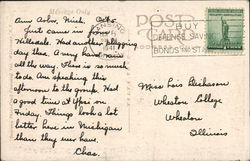 Message Only
POST
Ann Arbor, Mich. Oct.
Just came in from
Hillsdale. Had another shipping
day then. A very hard rain
all the way. There is so much
to do. Am speaking this
afternoon to the group. Had
a good time at Ypsi on
Friday. Things look a lot
better here in Michigan
than they ever have.
Chas.
BUY
DEFENSE SAVINGS
BONDS AND STAMPS
Miss Lois Dickason
Wheaton College
Wheaton
Illinois